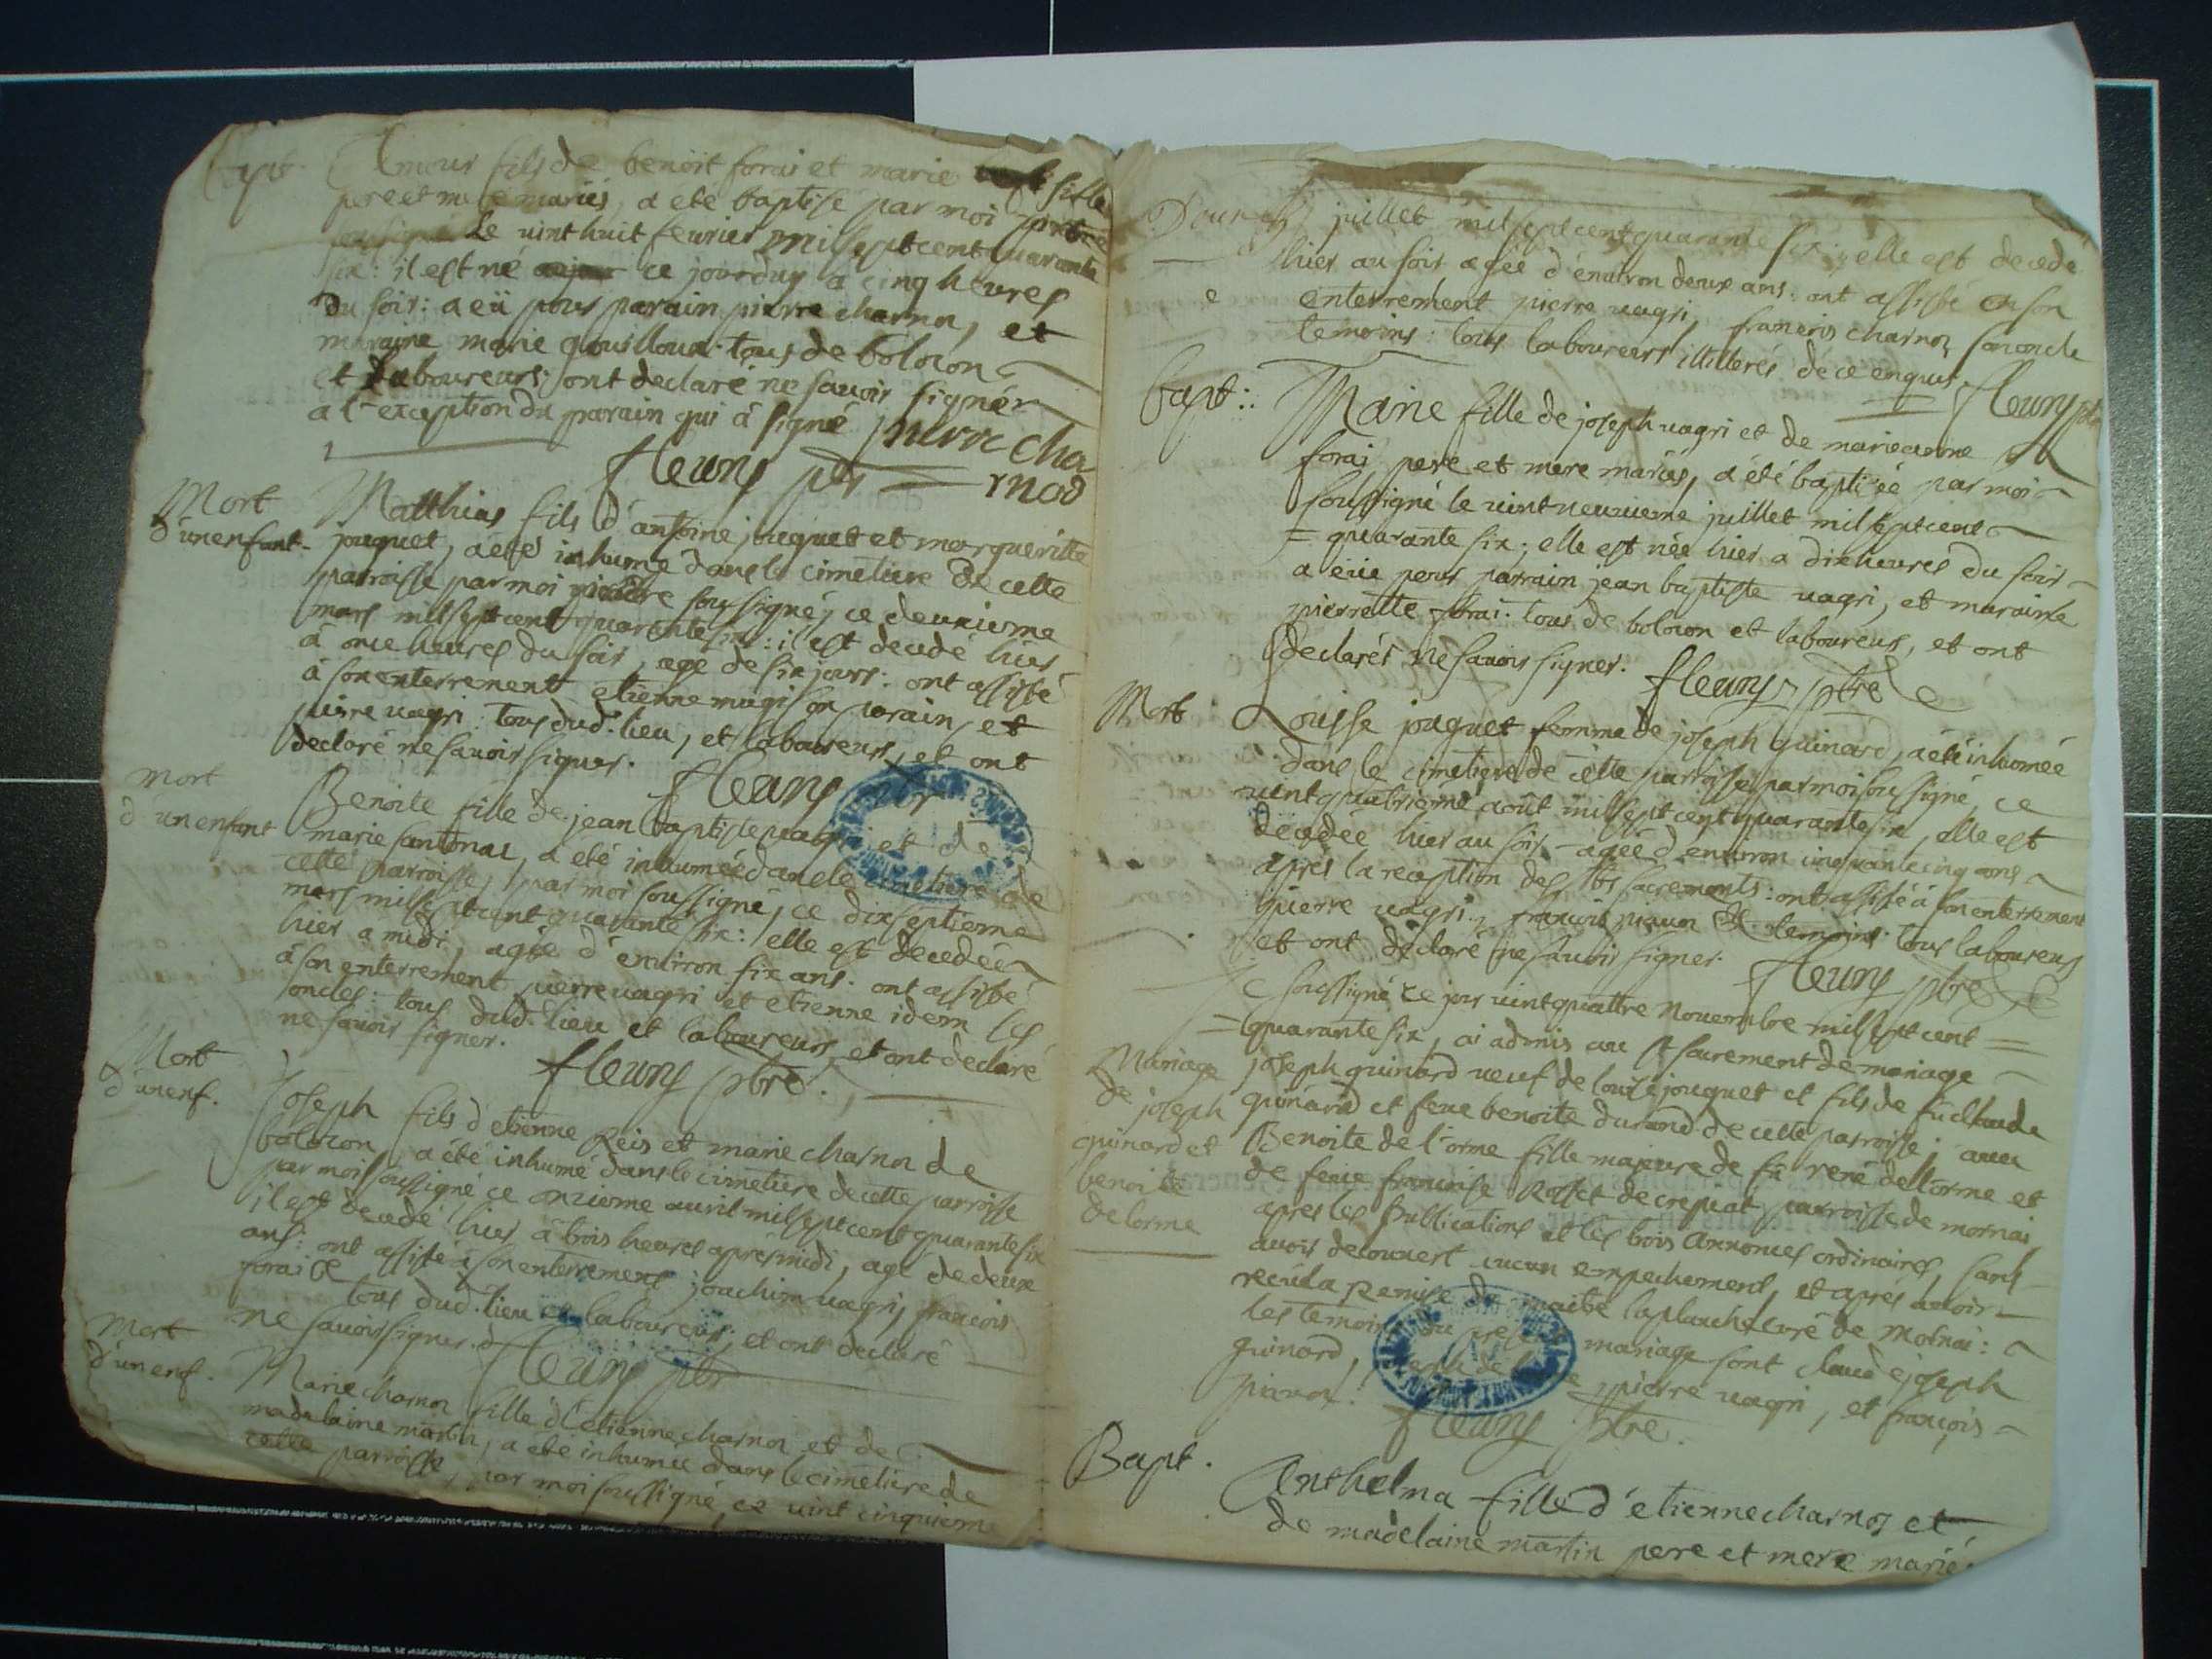 bapt. Amour fils de benoit forai et marie fille
pere et mere mariés, a été baptisé par moi prêtre
soussigné le vint huit fevrier mil sept cent quarante
six: il est né ce jourduy a cinq heures
du soir: a eü pour parain pierre charnoz, et
maraine marie gouilloux. tous de bolozon
et laboureurs: ont declaré ne savoir signér
a l'exception du parain qui à signé pierre cha
rnod
fleury ptre
Mort
d'un enfant. Matthias fils d'antoine juguet et margueritte
jouguet, a été inhumé dans le cimetiere de cette
parroisse par moi soussigné, ce deuxieme
mars mil sept cent quarante six: il est decedé hier
à onze heures du soir, agé de six jours: ont assisté
à son enterrement etienne mugi son parain, et
pierre vagri: tous dud. lieu, et laboureurs, et ont
declaré ne savoir signer. fleury ptr
Mort
d'un enfant Benoite fille de jean baptiste vagri et de
marie santonas, a été inhumée dans le cimetiere de
cette parroisse, par moi soussigné, ce dixseptieme
mars mil sept cent quarante six: elle est decedée
hier a midi, agée d'environ six ans. ont assisté
à son enterrement pierre vagri et etienne idem les
oncles: tous dud. lieu et laboureurs, et ont declaré
ne savoir signer. fleury ptre.
Mort
d'un enf. Joseph fils d'etienne Reis et marie charnoz de
bolozon, a été inhumé dans le cimetiere de cette parroisse
par moi soussigné, ce onzieme avril mil sept cent quarante six
il est decedé hier à trois heures après midi, agé de deux
ans: ont assisté à son enterrement joachim vagri, francois
forai & tous dud. lieu et laboureurs, et ont declaré
ne savoir signer. fleury ptr
Mort
d'un enf. Marie charnoz fille d'etienne charnoz et de
madelaine martin, a été inhumée dans le cimetiere de
cette parroisse, par moi soussigné, ce vint cinquieme
juillet mil sept cent quarante six; elle est decedé
hier au soir agée d'environ deux ans. ont assisté en son
enterrement pierre vagri, francois charnoz son oncle
temoins: tous laboureurs illiterés de ce enquis. fleury ptr
bapt:. Marie fille de joseph vagri et de marieanne
forai pere et mere mariés, a été baptisée par moi
soussigné le vint neuvieme juillet mil sept cent
quarante six; elle est née hier a dix heures du soir
a eüe pour parrain jean baptiste vagri, et maraine
pierrette forai. tous de bolozon et laboureurs, et ont
declarés ne savoir signer. fleury ptre
Mort Louisse juguet femme de joseph guinard, a été inhumée
dans le cimetiere de cette parroisse par moi soussigné, ce
vint quatrieme août mil sept cent quarante six, elle est
decedée hier au soir agée d'environ cinquante cinq ans
après la reception des sts sacrements: ont assisté à son enterrement
pierre vagri, francois pianon & temoins: tous laboureurs
et ont declaré ne savoir signer. fleury ptre
Je soussigné ce jour vint quattre Novembre mil sept cent
quarante six, ai admis au st sacrement de mariage
Mariage
de joseph
guinard et
benoite
delorme
joseph guinard veuf de louise jouguet et fils de fü claude
guinard et feue benoite durand de cette parroisse; avec
Benoite de l'orme fille majeure de fü rené dellorme et
de feue francoise Rosset de crepiat parroisse de mornai
apres les publications et les trois annonces ordinaires, sans
avoir decouvert aucun empechement, et aprés avoir
recü la remise de maitre laplanche curé de Mornai:
les temoins du present mariage sont claude joseph
guinard, pierre vagri, et françois
pianon. fleury ptre.
Bapt. Anthelma fille d'etienne charnoz et
de madelaine martin pere et mere marié